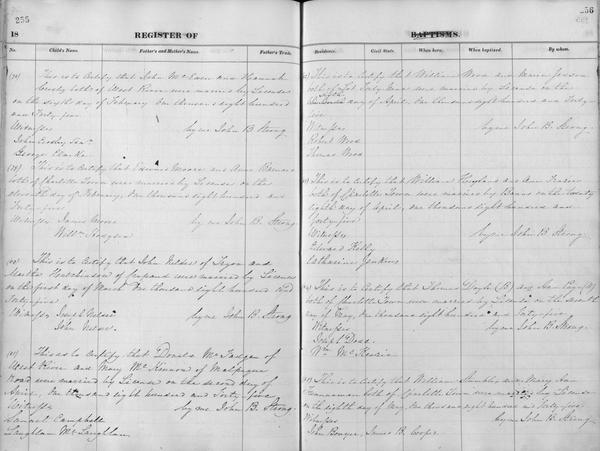 255
18 REGISTER OF
No. Child's Name. Father's and Mother's Name. Father's Trade.
This is to Certify that John McEwen and Hannah
Crosby both of West River were married by License
on the sixth day of February One thousand eight hundred
and Forty five
Witnesses by me John B. Strong
John Crosby
George Clarke
This is to Certify that Edward Moore and Anne Barnard
both of Charlotte Town were married by License on the
day of February, One thousand eight hundred and
Forty five
Witnesses James Moore by me John B. Strong
Willm Hodgson
This is to Certify that John Nelson of Tryon and
Martha Hutchinson of were married by License
on the first day of March One thousand eight hundred and
Forty five
Witnesses Joseph Nelson by me John B. Strong
John Nelson
This is to Certify that Donald McFadgen of
West River and Mary McKinnon of Malpeque
Road were married by License on the second day of
April, One thousand eight hundred and Forty five
Witnesses by me John B. Strong
Samuel Campbell
Laughlan McLaughlan
256
BAPTISMS.
Residence. Civil State. When born. When baptized. By whom.
This is to Certify that William Wood and
both of were married by License on the
day of April, One thousand eight hundred and Forty
five
Witnesses by me John B. Strong
Robert Wood
Thomas Wood
This is to Certify that William Hoyland and Ann Frazier
both of Charlotte Town were married by Banns on the twenty
eighth day of April, One thousand eight hundred and
forty five
Witnesses by me John B. Strong
Edward Kelly
Catharine Jenkins
This is to Certify that Thomas Doyle (B) and
both of Charlotte Town were married by License on the seventh
of May, One thousand eight hundred and Forty five
Witnesses by me John B. Strong
Joseph Dodd
Wm
This is to Certify that William and Mary Ann
both of Charlotte Town were married by License
on the eighth day of May, One thousand eight hundred and forty five
Witnesses by me John B. Strong
John Bowyer, James B. Cooper